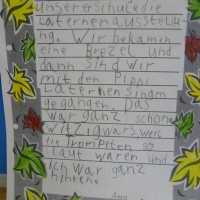 unsererschule die
Laternenausstellu
ng. Wir bekamen
eine Brezel und
dann sind wir
mit den Pippi
Laternen singen
gegangen. Das
war ganz schön
witzig wars, weil
die Trompeten so
laut waren und
ich war ganz
hinten.